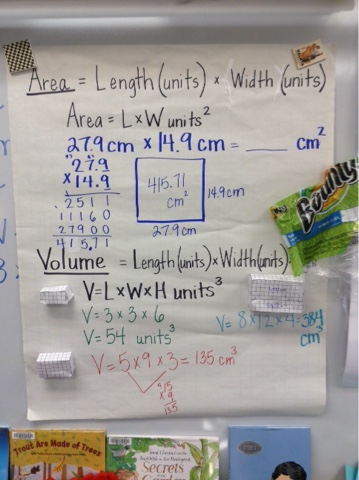 Area = Length (units) × Width (units)
Area = L × W units²
27.9 cm × 14.9 cm = ____ cm²
27.9
× 14.9
2511
11160
27900
415.71
415.71
cm²
14.9cm
27.9cm
Bounty
Volume = Length (units) × Width (units) ×
V = L × W × H units³
V = 3 × 3 × 6
V = 54 units³
V = 8 × 12 × 4 = 384
cm³
V = 5 × 9 × 3 = 135 cm³
45
× 3
135
Trout Are Made of Trees
Secrets